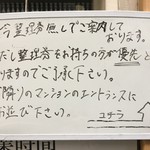 今整理券無しでご案内して
おります。
だし整理券をお持ちの方が優先と
りますのでご了承下さい。
隣りのマンションのエントランスに
お並び下さい。